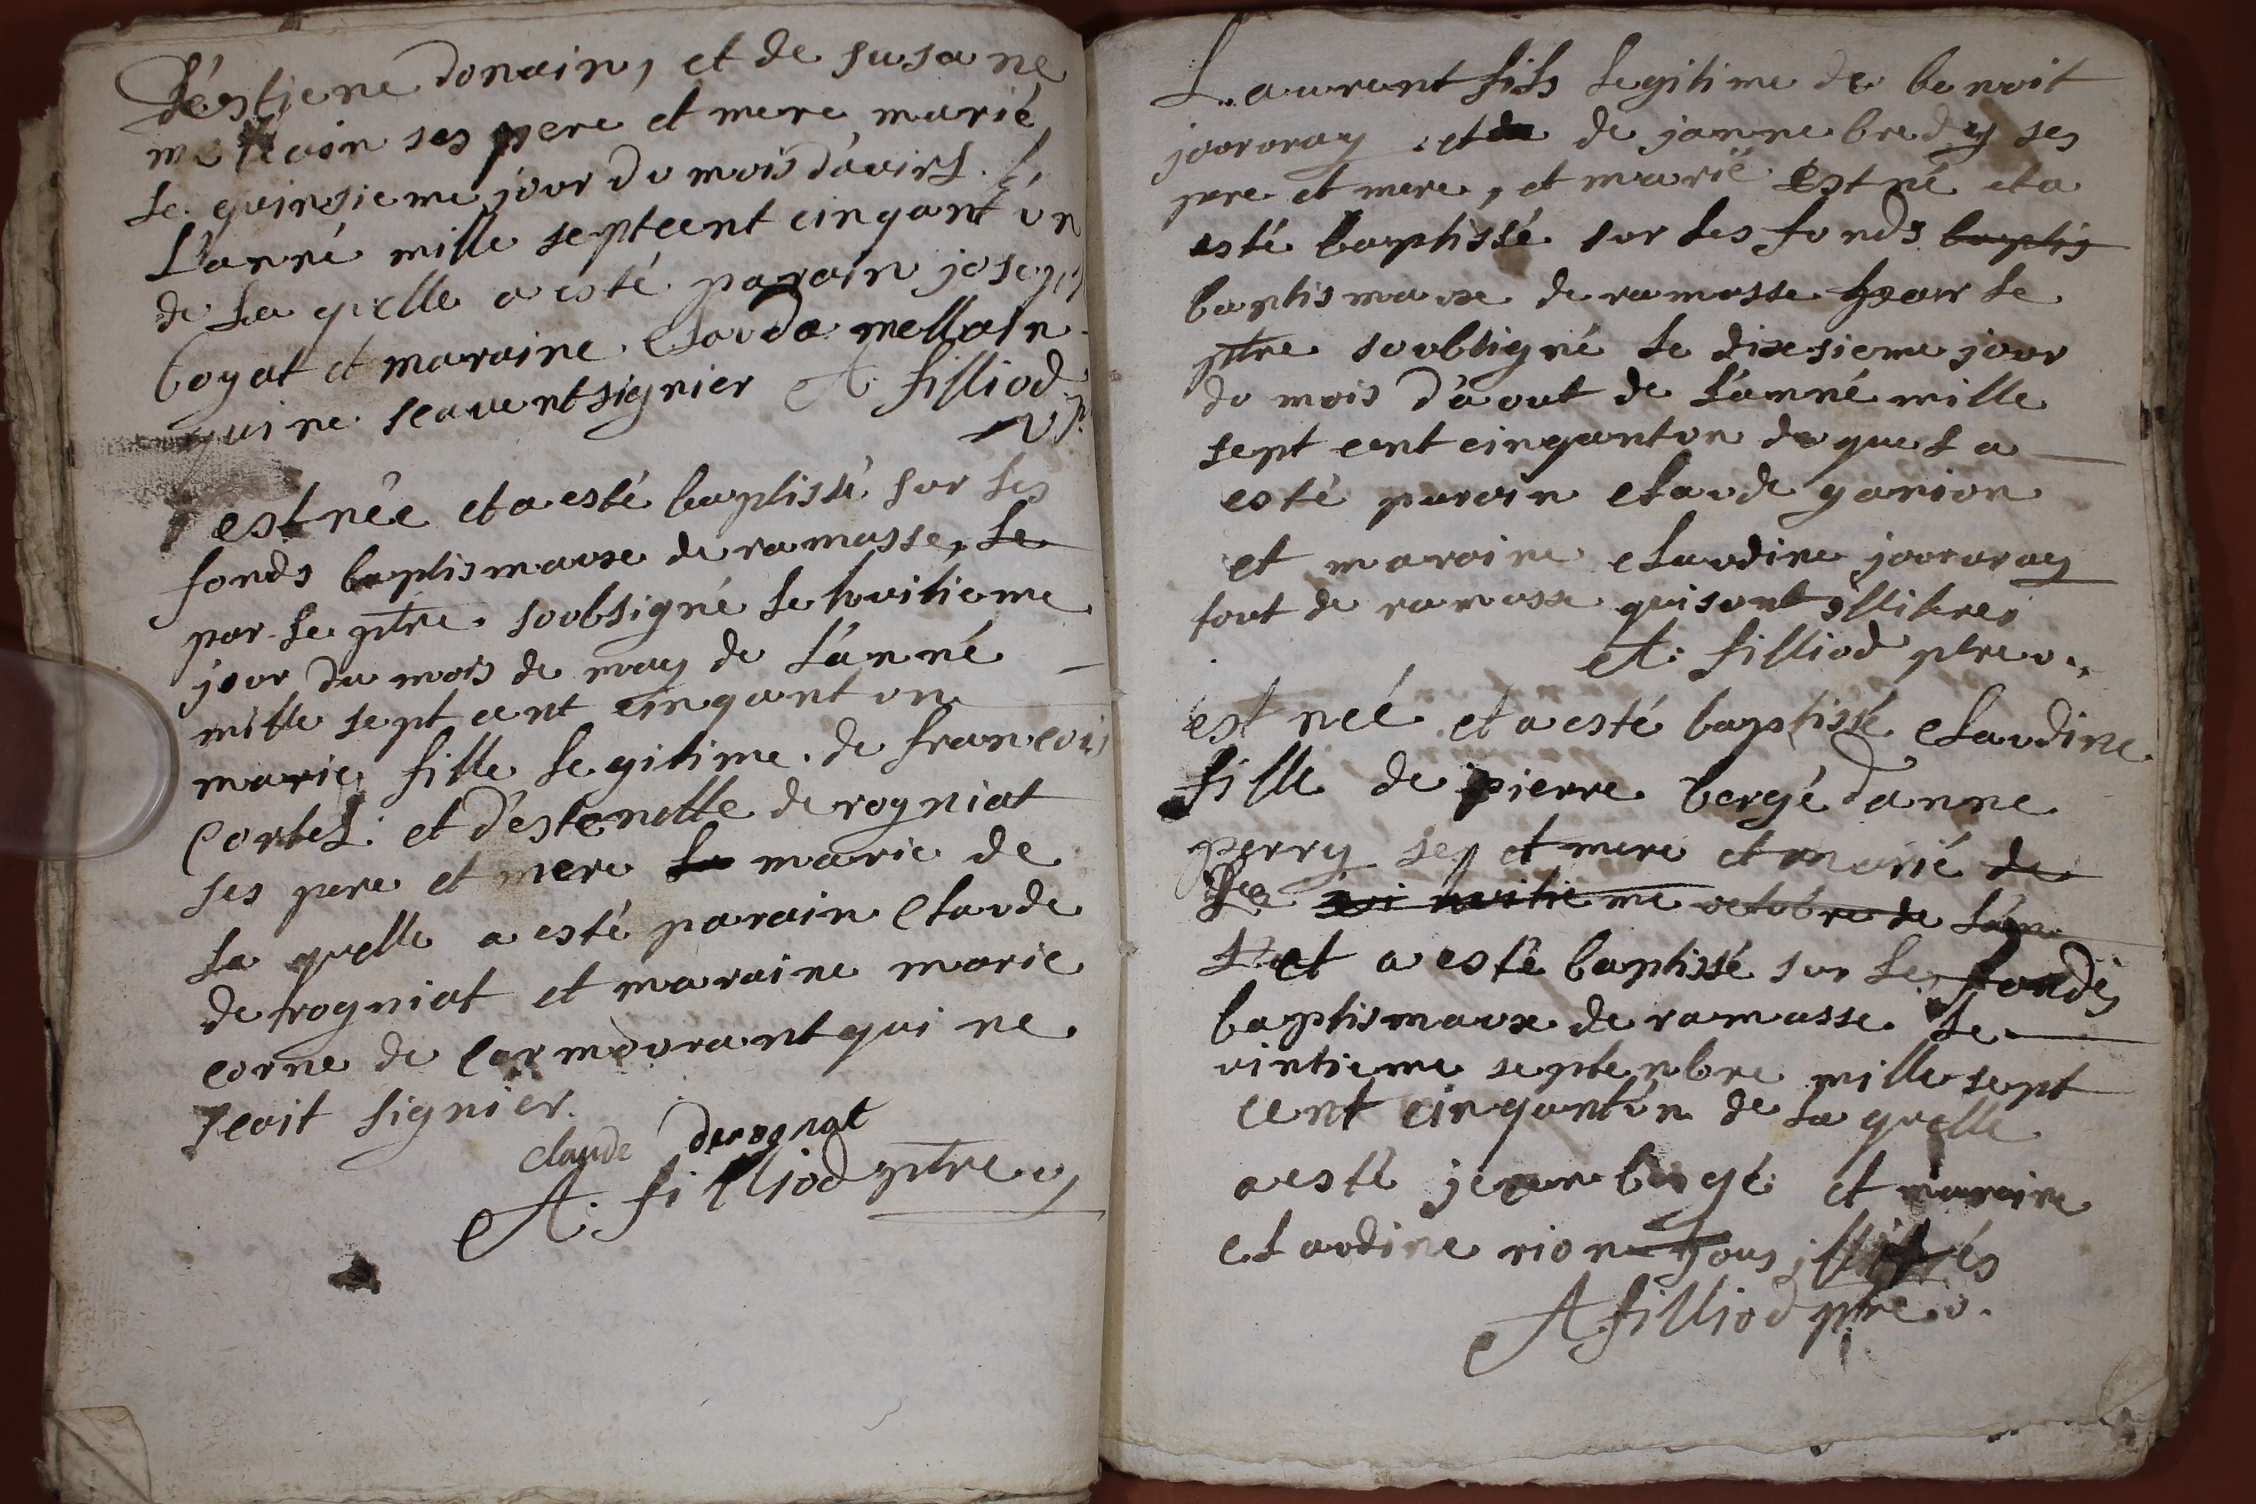 d'estiene donain, et de susane
ses pere et mere marié
le quinsieme jour du mois d'avirl
L'anné mille septcent cinqant un
de la quelle a esté parain joseph
boyat et maraine clauda mellain
qui ne scavent signier A. filliod
est née et a esté baptissé sur les
fonds baptismaux de ramasse, le
par le ptre soubsigné le huitieme
jour du mois de may de l'anné
mille sept cent cinqant un
marie fille legitime de francois
cortel et d'estenette de rogniat
ses pere et mere marie de
la quelle a esté parain claude
de rogniat et maraine marie
corne de cormourant qui ne
scait signier.
claude derognat
A. filliod ptre v
Laurent fils legitime de benoit
joururay et de janne bredy ses
pere et mere, et marié est né et a
esté baptissé sur les fonds baptis
baptismaux de ramasse par le
ptre soubsigné le dixsieme jour
du mois d'aout de l'anné mille
sept cent cinqantun du quel a
esté parain claude ganion
et maraine claudine joururay
tout de ramasse qui sont illiteres
A. filliod ptre v.
est neé et a esté baptissé claudine
fille de pierre bergé d'anne
perry ses et mere et marié de
le huitieme octobre de l'an
et a esté baptissé sur les fonds
baptismaux de ramasse le
vintieme septenbre mille sept
cent cinqantun de la quelle
a esté jean bergé et maraine
claudine rion tous illitrés
A filliod ptre v.